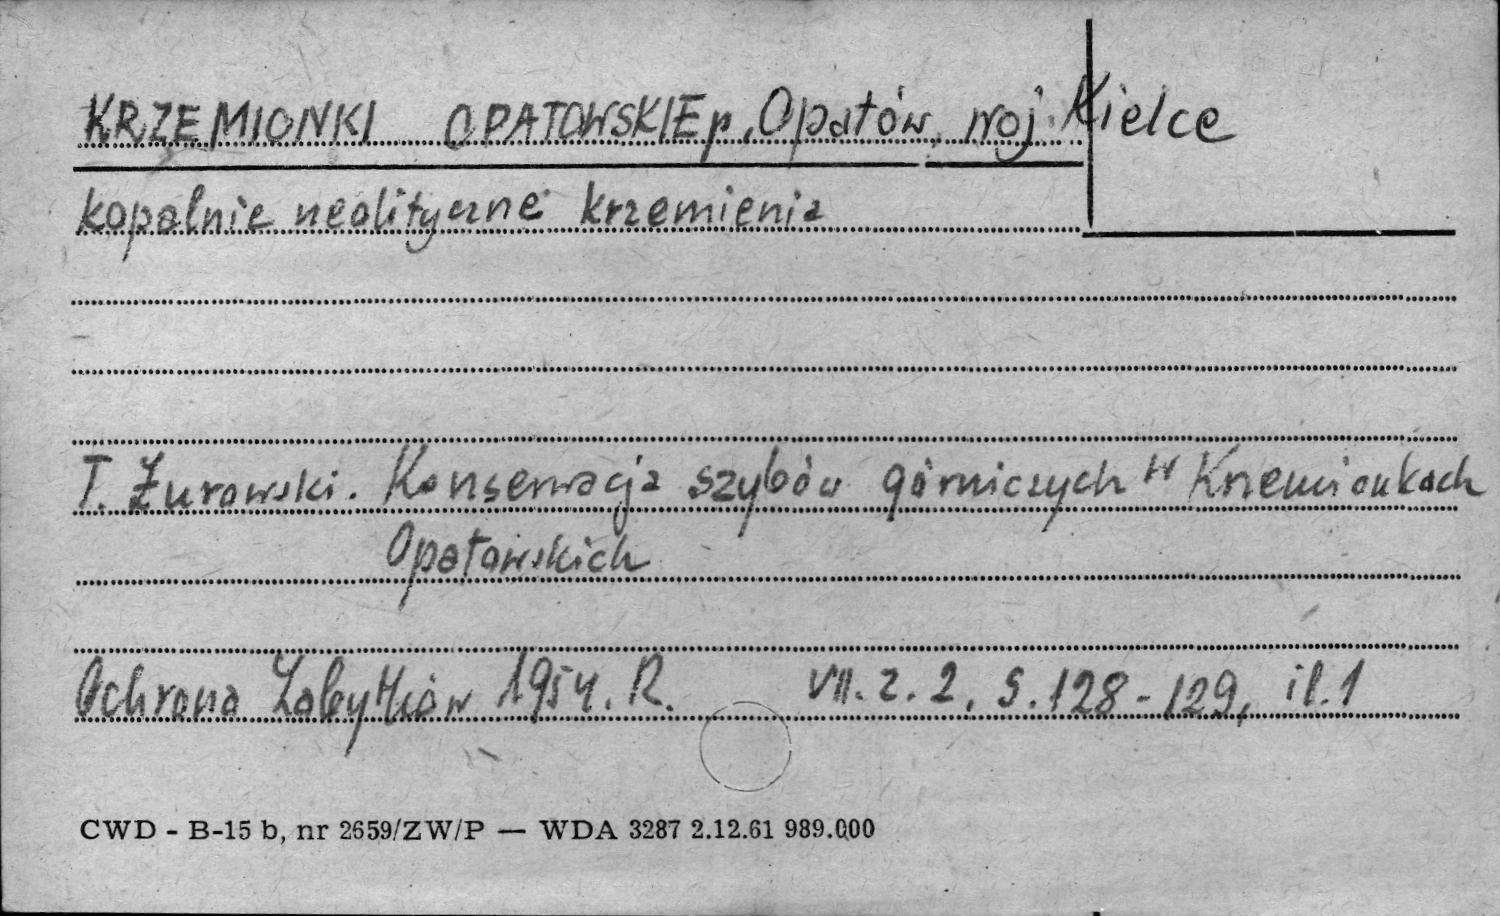 KRZEMIONKI OPATOWSKIE p. Opatów, woj. Kielce
kopalnie neolityczne krzemienia
T. Żurowski. Konserwacja szybów górniczych w Krzemionkach
Opatowskich
Ochrona Zabytków 1954. R. VII. z. 2, s. 128-129, il. 1
CWD - B-15 b, nr 2659/ZW/P — WDA 3287 2.12.61 989.000